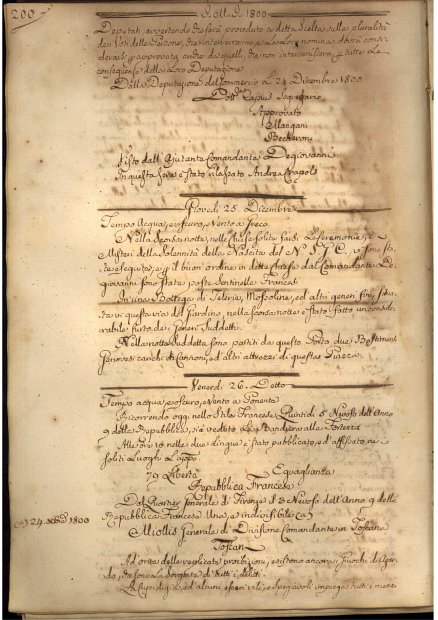 200
D. Ott. D. 1800
Deputati, avvertendo che sarà proceduto a detta Scelta sulla pluralità
dei Voti delle Persone, che v'interverranno, e La Loro nomina, dovrà consi-
derarsi approvata anche da quelli, che non intervenissero, tutte Le
conseguenze della Loro Deputazione.
Dalla Deputazione del Commercio Li 24 Dicembre 1800
Segretario
Approvato
Mangani
Becheroni
Visto dall'Ajutante Comandante Degiovanni
In questa sera è stato rilasciato Andrea
Giovedì 25. Dicembre
Tempo Acqua, e oscuro, e Vento a Greco
Nella scorsa notte, nelle chiese solite farsi Le Ceremonie, e
Misteri della Solennità della Nascita del N. S. G. C. vi sono sta-
te eseguite, e il buon ordine in dette chiese dal Comandante De-
giovanni sono state poste Sentinelle Francesi
In una Bottega di Telerie, Mossoline, ed altri generi fini, situa-
ta in questa via del Giardino, nella scorsa notte è stato fatto un consid-
erabile furto dei Generi suddetti.
Nella notte suddetta sono partiti da questo Porto due Bastimenti
Genovesi carichi di Cannoni, ed altri attrezzi di questa Piazza.
Venerdì 26. Detto
Tempo acqua, e oscuro, e Vento a Ponente
Ricorrendo oggi nello Stile Francese Quintidi 5 Nevoso dell'Anno
9 della Repubblica, si è veduto La Bandiera alla Fortezza
Alle Ore 10 nelle due Lingue è stato pubblicato, ed affissato ne
soliti Luoghi L'appo
79 Libertà Eguaglianza
Repubblica Francese
Dal Quartier Generale di Firenze il 3 Nevoso dell'Anno 9 della
Repubblica Francese Una, e indivisibile (a)
(a) 24 Xbre 1800
Miollis Generale di Divisione Comandante in Toscana
Toscani
Ad onta delle replicate proibizioni, esistono ancora i Giuochi di Azzar-
do, che sono la Sorgente di tutti i delitti.
La Cupidigia, ed alcuni esseri vili, e spregevoli impiega tutti i mezzi